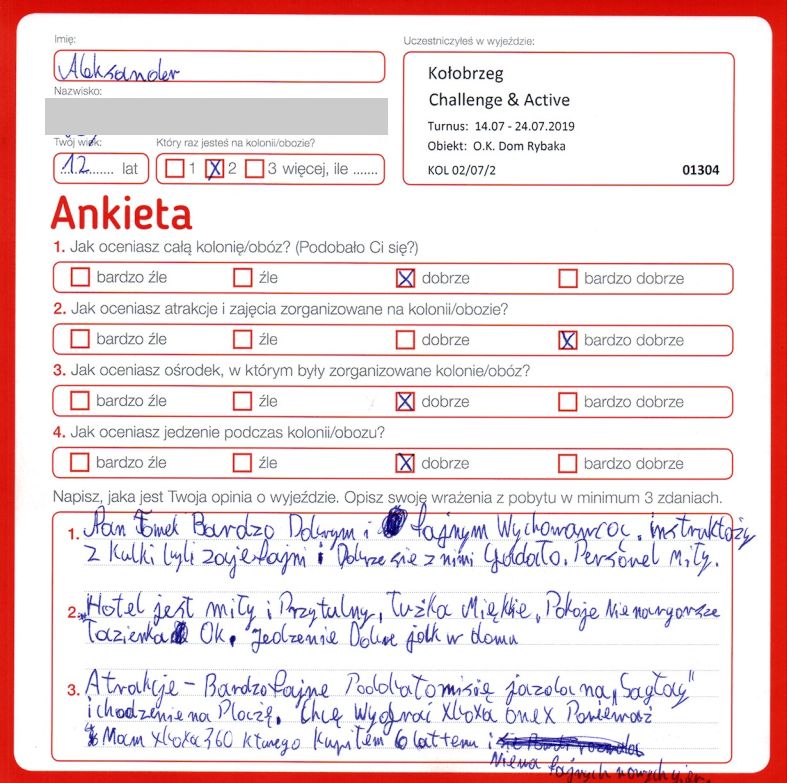 Imię:
Aleksander
Nazwisko:
Twój wiek:
12 lat
Który raz jesteś na kolonii/obozie?
1 X 2 3 więcej, ile .......
Uczestniczyłeś w wyjeździe:
Kołobrzeg
Challenge & Active
Turnus: 14.07 - 24.07.2019
Obiekt: O.K. Dom Rybaka
KOL 02/07/2 01304
Ankieta
1. Jak oceniasz całą kolonię/obóz? (Podobało Ci się?)
bardzo źle źle X dobrze bardzo dobrze
2. Jak oceniasz atrakcje i zajęcia zorganizowane na kolonii/obozie?
bardzo źle źle dobrze X bardzo dobrze
3. Jak oceniasz ośrodek, w którym były zorganizowane kolonie/obóz?
bardzo źle źle X dobrze bardzo dobrze
4. Jak oceniasz jedzenie podczas kolonii/obozu?
bardzo źle źle X dobrze bardzo dobrze
Napisz, jaka jest Twoja opinia o wyjeździe. Opisz swoje wrażenia z pobytu w minimum 3 zdaniach.
1. Pan Tomek Bardzo Dobrym i fajnym Wychowawcą. instruktoży
z Kulki byli zajefajni i Dobrze się z nimi Gadało. Personel Miły.
2. Hotel jest miły i Przytulny, Łużka Miękkie, Pokoje Nienajgorsze
Łazienka Ok. Jedzenie Dobre jak w domu
3. Atrakcje - Bardzo fajne Podobało mi się jazda na „
i chodzenie na Plażę. Chcę Wygrać Xboxa oneX Ponieważ
Mam Xboxa 360 którego Kupiłem 6 lat temu i
Niema fajnych nowych gier.